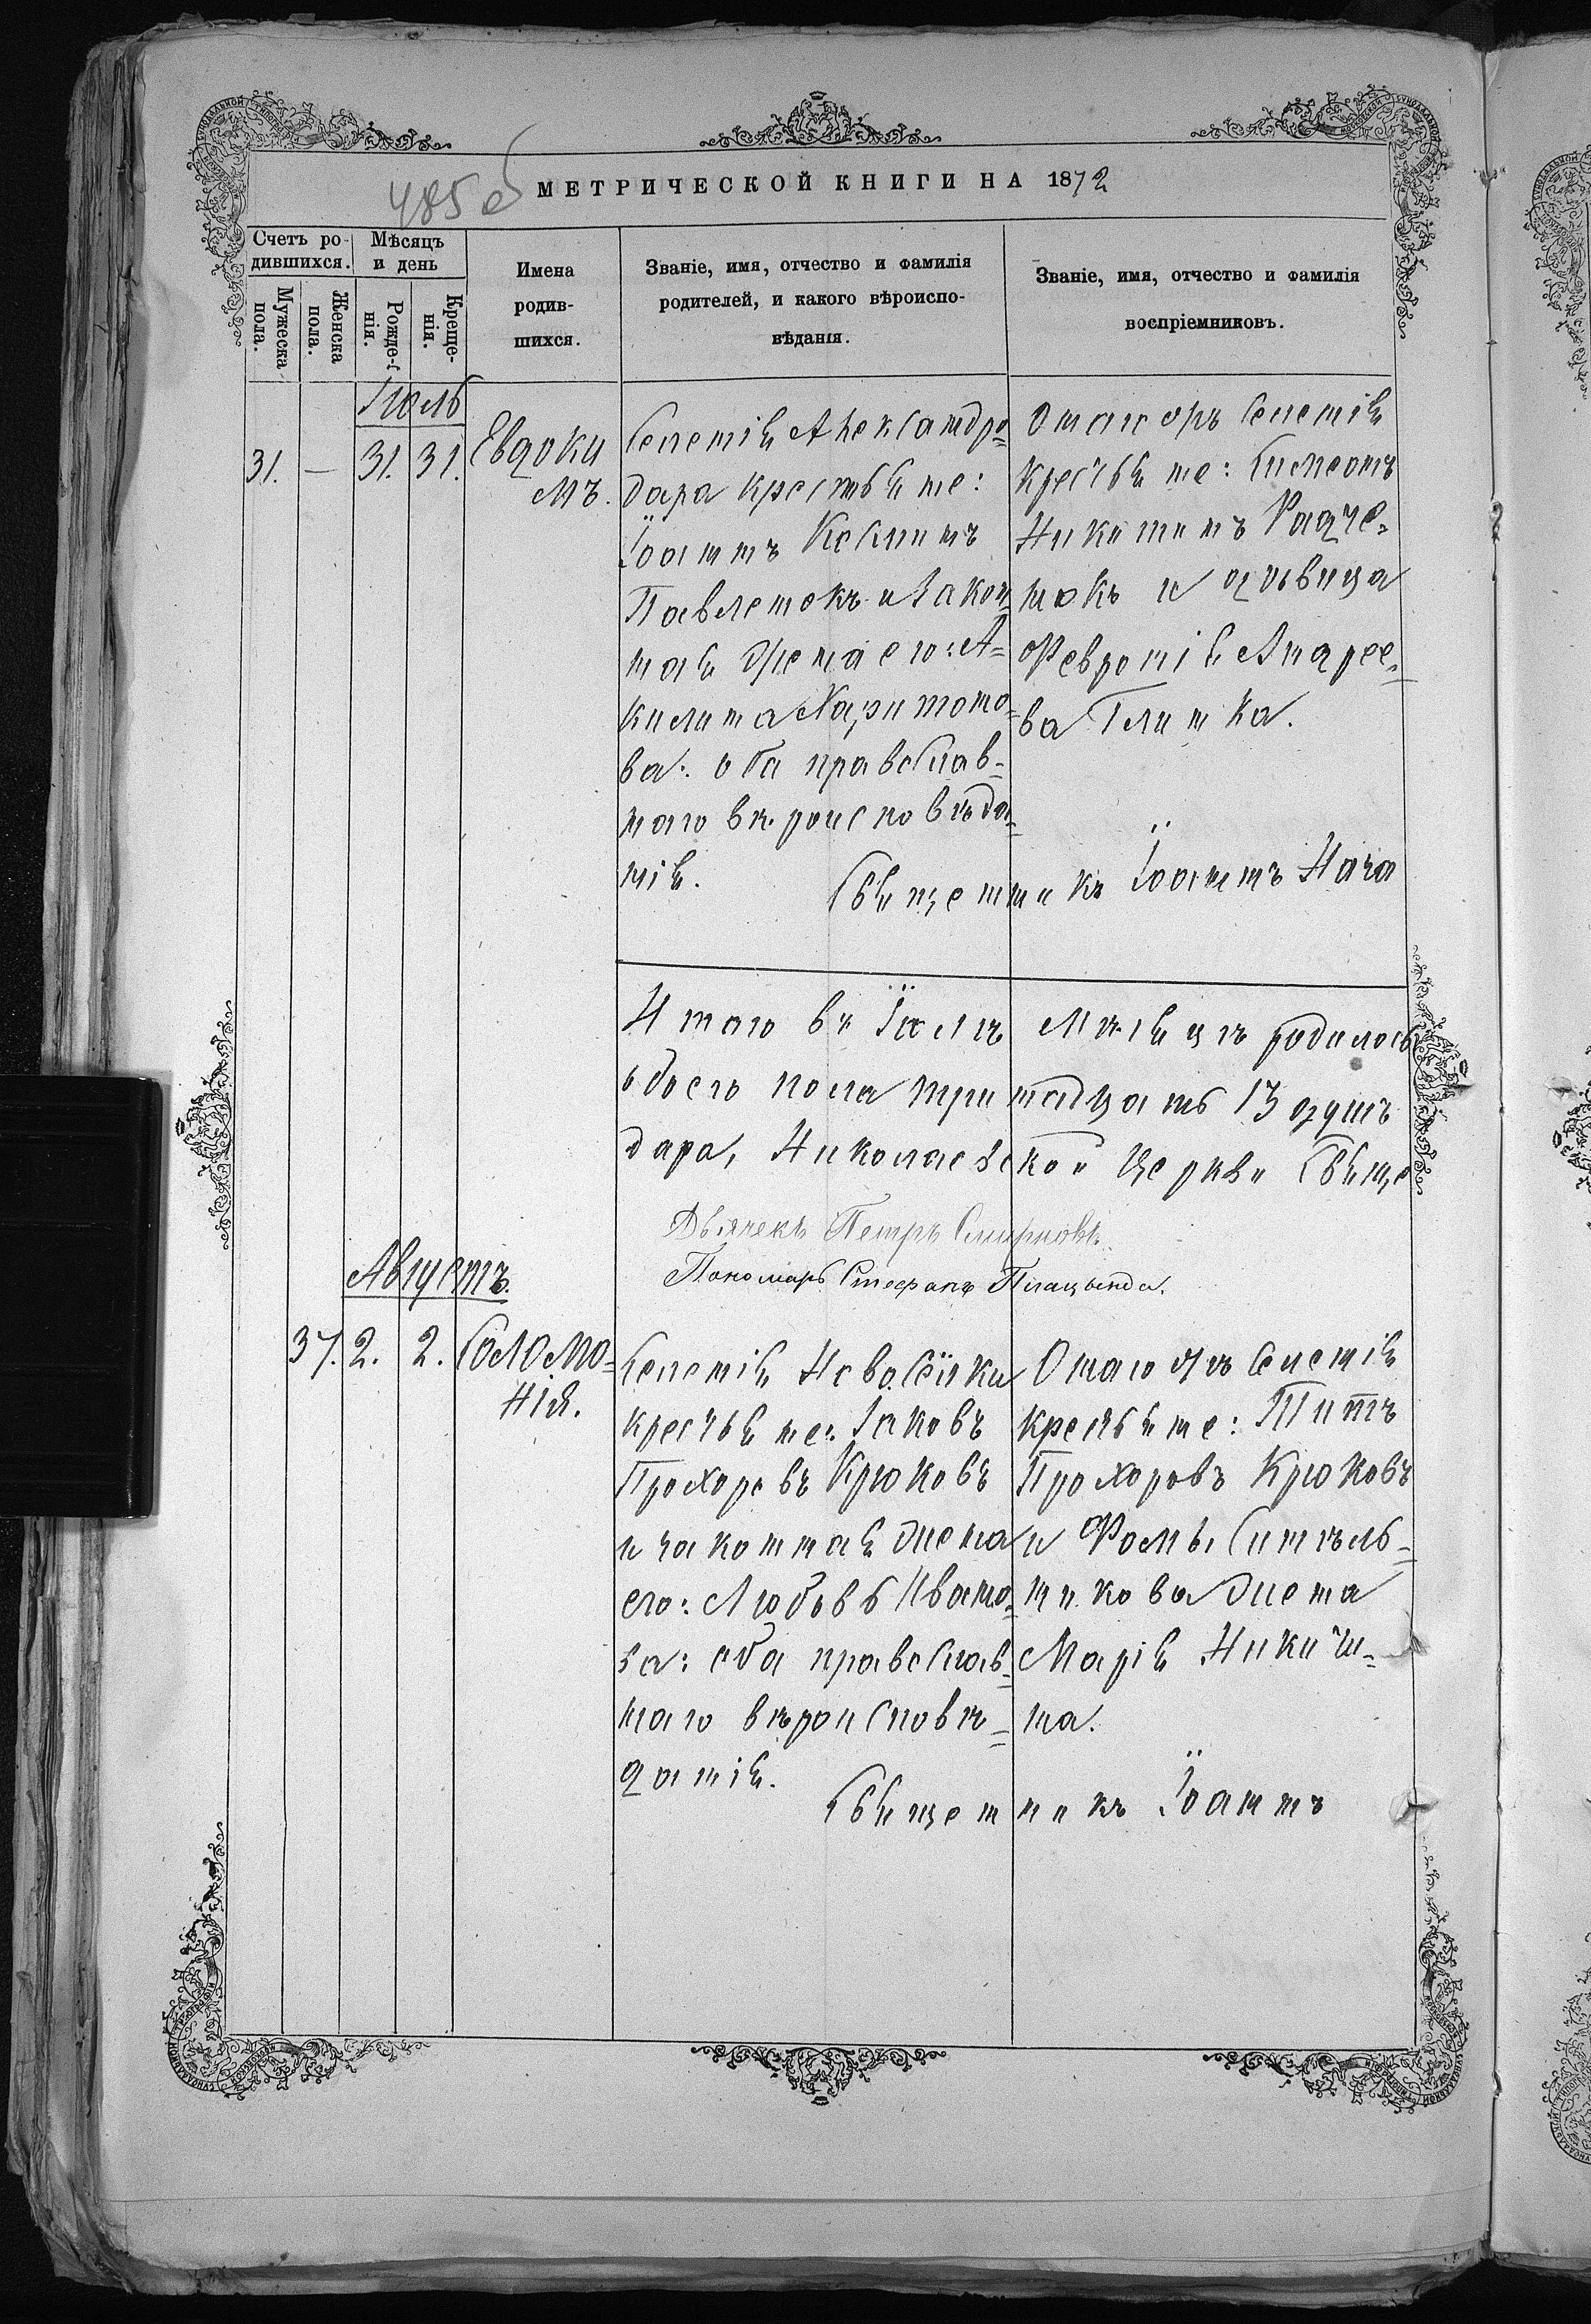 485 об
МЕТРИЧЕСКОЙ КНИГИ НА 1872
Счетъ ро-
дившихся.
Мужеска
пола.
Женска
пола.
Мѣсяцъ
и день
Рожде-
нія.
Креще-
нія.
Имена
родив-
шихся.
Званіе, имя, отчество и фамилія
родителей, и какого вѣроиспо-
вѣданія.
Званіе, имя, отчество и фамилія
воспріемниковъ.
Іюль
31. — 31. 31.
Евдоки
мъ.
Селенія Александро-
дара крестьяне:
Іоаннъ
Павленокъ и закон-
ная жена его: А-
килина Харитоно-
ва: оба православ-
наго вѣроисповѣда-
нія.
селенія
крестьяне: Симеонъ
Никитинъ Радче-
нокъ и дѣвица
Февронія Андрее-
ва Глинка.
Священникъ Іоаннъ
Итого въ Іюлѣ мѣсяцѣ родилось
обоего пола тринадцать 13 душъ
дара, Николаевской церкви Свяще
Дьячекъ Петръ Смирновъ.
Пономарь Стефанъ Плацында.
Августъ.
37. 2. 2.
Соломо-
нія.
Селенія Новоселки
крестьяне: Іаковъ
Прохоровъ Крюковъ
и законная жена
его: Любовь Ивано-
ва: оба православ-
наго вѣроисповѣ-
данія.
селенія
крестьяне: Титъ
Прохоровъ Крюковъ
и Фомы Синѣль-
никова жена
Марія Никити-
на.
Священникъ Іоаннъ